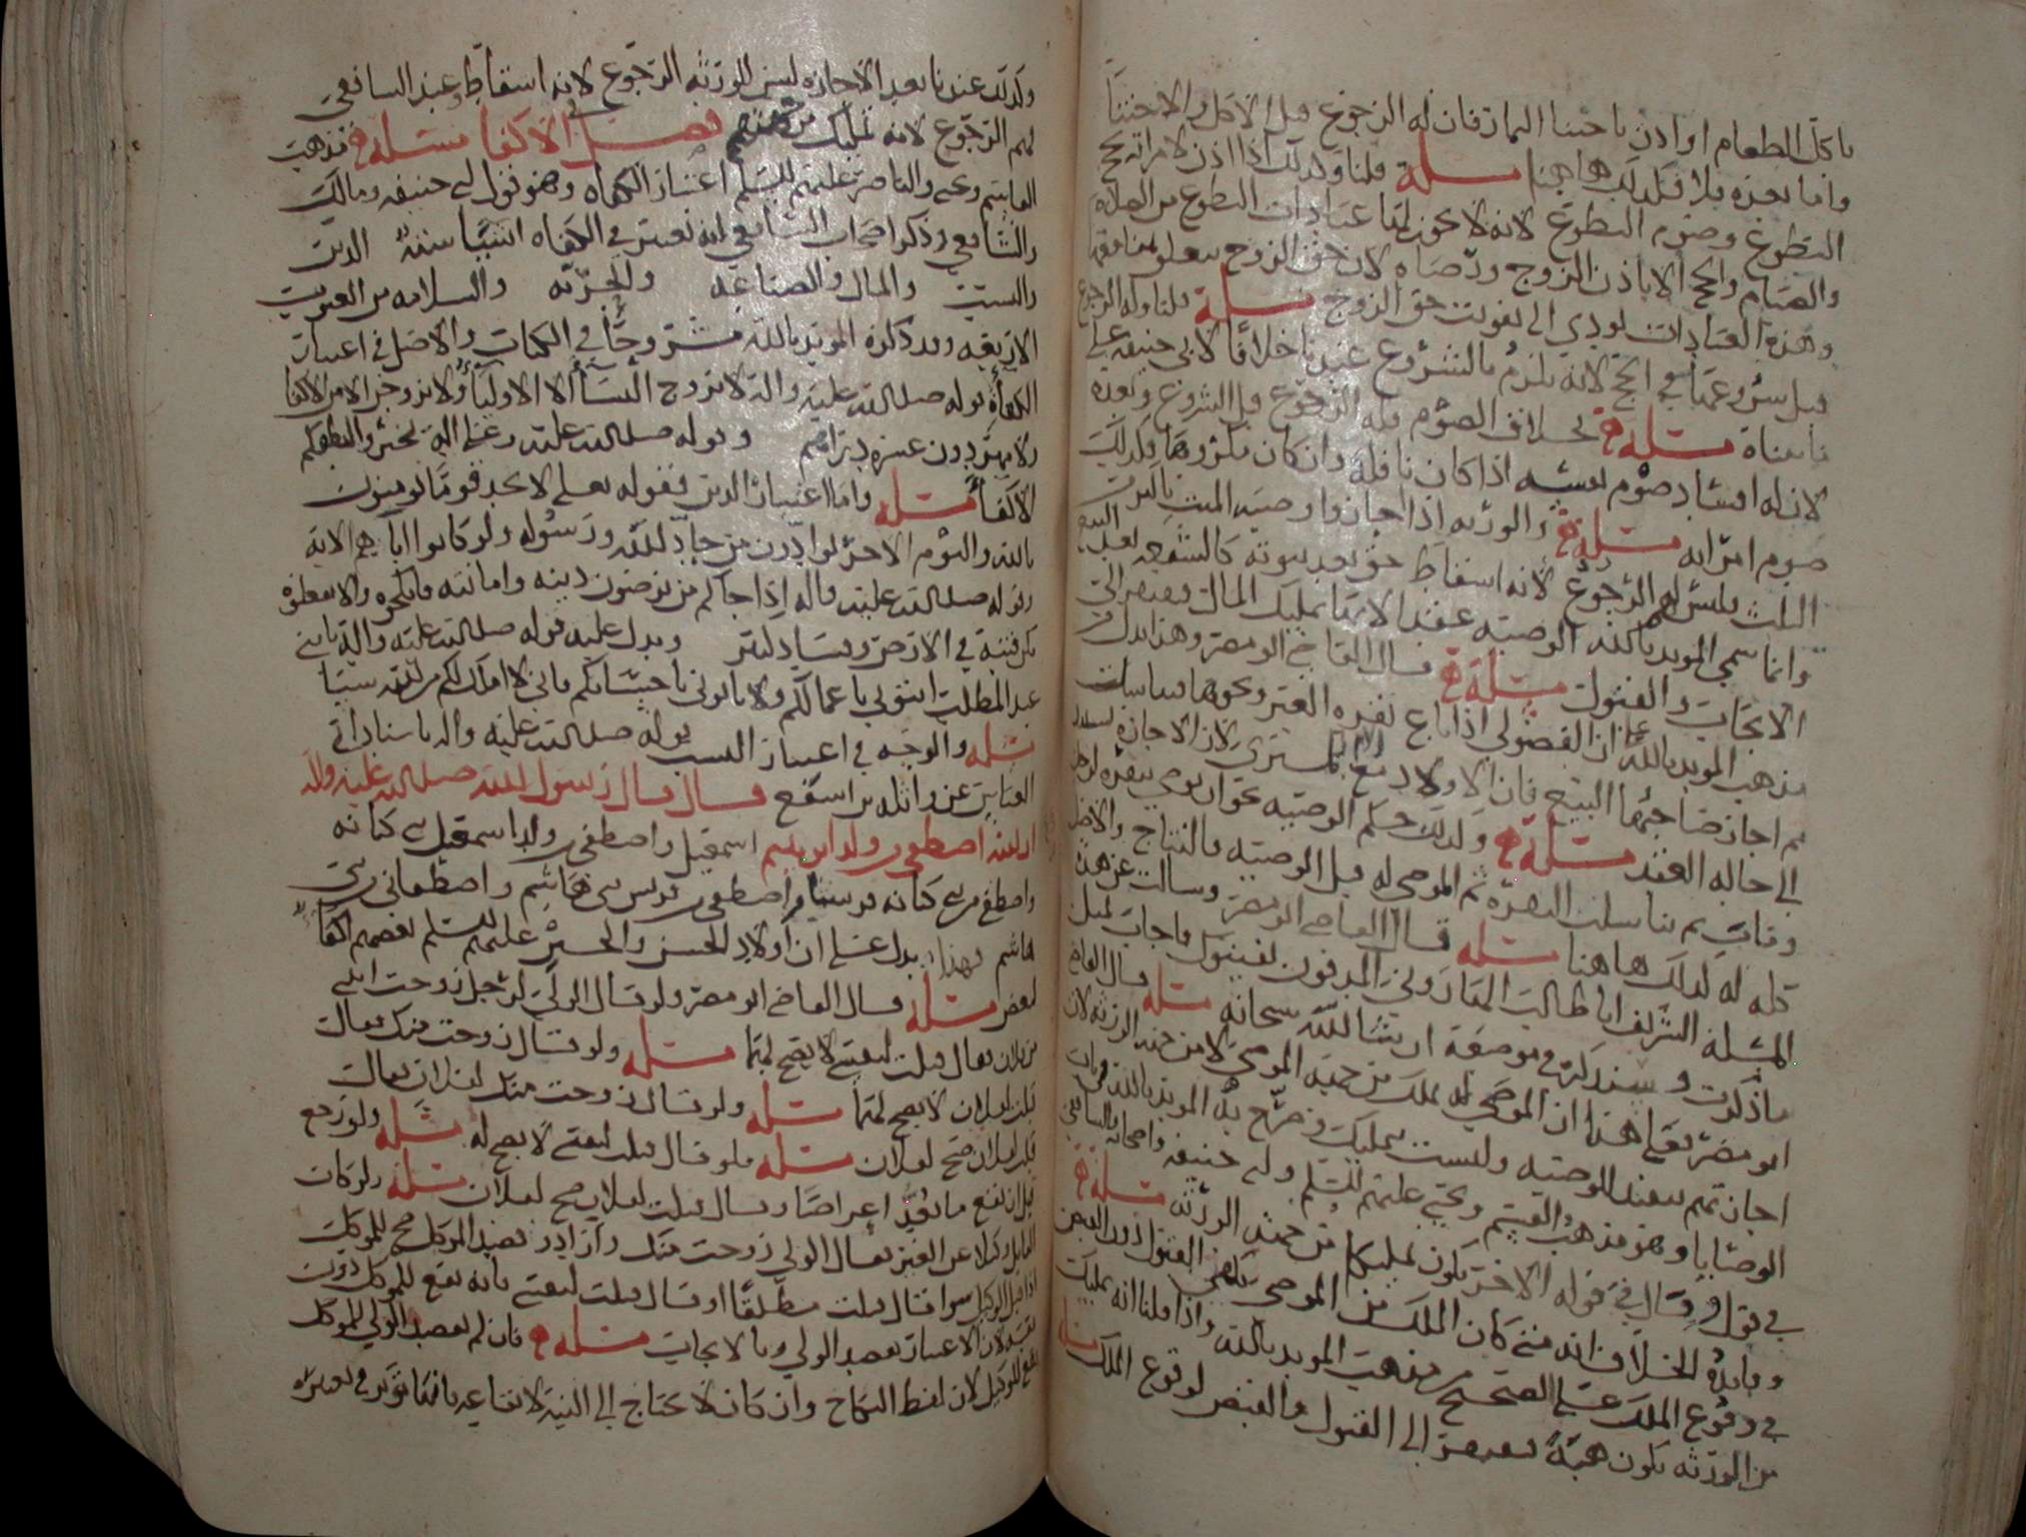 ياكل الطعام او اذن باجتنا الثمار فان له الرجوع قبل الاكل والاجتنا
واما بعده فلا فكذلك هاهنا مسلة قلنا وكذلك اذا اذن لامراته بحج
التطوع وصوم التطوع لانه لا يجوز لها عبادات التطوع من الصلاة
والصيام والحج الا باذن الزوج ورضاه لان حق الزوج متعلق بمنافعها
وهذه العبادات تودي الى تفويت حق الزوج مسلة قلنا وله الرجوع
قبل شروعها في الحج لانه يلزم بالشروع عندنا خلافا لابي حنيفه على
ما بيناه مسلة بخلاف الصوم فله الرجوع قبل الشروع وبعده
لان له افساد صوم نفسه اذا كان نافلة وان كان مكروها فكذلك
صوم امراته مسلة والورثه اذا اجازوا وصيه الميت باكثر من
الثلث فليس لهم الرجوع لانه اسقاط حق بعد ثبوته كالشفعه بعد البيع
وانما سمى المويد بالله الوصيه عقدا لانها تمليك المال ويفتقر الى
الايجاب والقبول مسلة قال القاضي ابو مضر وهذا يدل من
مذهب المويد بالله على ان الفضولي اذا باع بقره الغير ونحوها فتناسلت
ثم اجاز صاحبها البيع فان الاولاد مع الام للمشتري لان الاجازه تستند
الى حاله العقد مسلة وكذلك حكم الوصيه نحو ان يوصي ببقره لرجل
ومات ثم تناسلت البقره ثم الموصى له قبل الوصيه فالنتاج والاصل
كله له كذلك هاهنا مسلة قال القاضي ابو مضر وسالت عن هذه
المسلة الشريف ابا طالب القاروني المدفون بفيتول فاجاب بمثل
ما ذكرت وسنذكره في موضعه ان شا الله سبحانه مسلة قال القاضي
ابو مضر فعلى هذا ان الموصى له يملك من جهة الموصي لا من جهة الورثه لان
اجازتهم تنفيذ للوصيه وليست بتمليك وصرح به المويد بالله في باب
الوصايا وهو مذهب القسم ويحيى عليهم السلم وابي حنيفه واصحابه والشافعي
في قول وقال في قوله الاخر يكون تمليكا من جهة الورثه مسلة
وفايدة الخلاف انه متى كان الملك من الموصي يكفي القبول دون القبض
في وقوع الملك على الصحيح من مذهب المويد بالله واذا قلنا انه تمليك
من الورثه يكون هبة فيفتقر الى القبول والقبض لوقوع الملك مسلة
وكذلك عندنا بعد الاجازه ليس للورثه الرجوع لانه اسقاط وعند الشافعي
لهم الرجوع لانه تمليك من جهتهم فصل في الاكفا مسلة مذهب
القاسم ويحيى والناصر عليهم السلم اعتبار الكفاه وهو قول ابي حنيفه ومالك
والشافعي وذكر اصحاب الشافعي انه تعتبر في الكفاه اشيا ستة الدين
والنسب والمال والصناعه والحريه والسلامه من العيوب
الاربعه وقد ذكره المويد بالله مشروحا في الكتاب والاصل في اعتبار
الكفاة قوله صلى الله عليه واله لا تزوج النسا الا الاوليا ولا تزوجن الا من الاكفا
ولا مهر دون عشره دراهم وقوله صلى الله عليه وعلى اله تخيروا لنطفكم
الاكفا مسلة واما اعتبار الدين فقوله تعلى لا تجد قوما يومنون
بالله واليوم الاخر يوادون من حاد الله ورسوله ولو كانوا اباهم الايه
وقوله صلى الله عليه واله اذا جاكم من ترضون دينه وامانته فانكحوه والا تفعلوه
تكن فتنة في الارض وفساد كبير ويدل عليه قوله صلى الله عليه واله يا بني
عبد المطلب ايتوني باعمالكم ولا تاتوني باحسابكم فاني لا املك لكم من الله شيا
مسلة والوجه في اعتبار النسب قوله صلى الله عليه واله باسناد ابي
العباس عن واثله بن اسقع قال قال رسول الله صلى الله عليه واله
ان الله اصطفى من ولد ابرهيم اسمعيل واصطفى من ولد اسمعيل بني كنانه
واصطفى من بني كنانه قريشا واصطفى من قريش بني هاشم واصطفاني من بني
هاشم فهذا يدل على ان اولاد الحسن والحسين عليهم السلم بعضهم اكفا
لبعض مسلة قال القاضي ابو مضر ولو قال الولي لرجل زوجت ابنتي
من فلان فقال قبلت لنفسي لا يصح لهما مسلة ولو قال زوجت منك فقال
قبلت لفلان لا يصح لهما مسلة ولو قال زوجت منك لفلان فقال
قبلت لفلان صح لفلان مسلة فلو قال قبلت لنفسي لا يصح له مسلة ولو رجع
قبل ان يقع ما يعد اعراضا وقال قبلت لفلان صح لفلان مسلة ولو كان
القابل وكيلا عن الغير فقال الولي زوجت منك واراد به تقصد الموكل صح للموكل
اذا قبل الوكيل سوا قال قبلت مطلقا او قال قبلت لنفسي فانه يقع للموكل دون
نفسه لان الاعتبار بقصد الولي وبالايجاب مسلة فان لم يقصد الولي الموكل
يقع للوكيل لان لفظ النكاح وان كان لا يحتاج الى النية لايقاعه فانها توثر في تعيينه